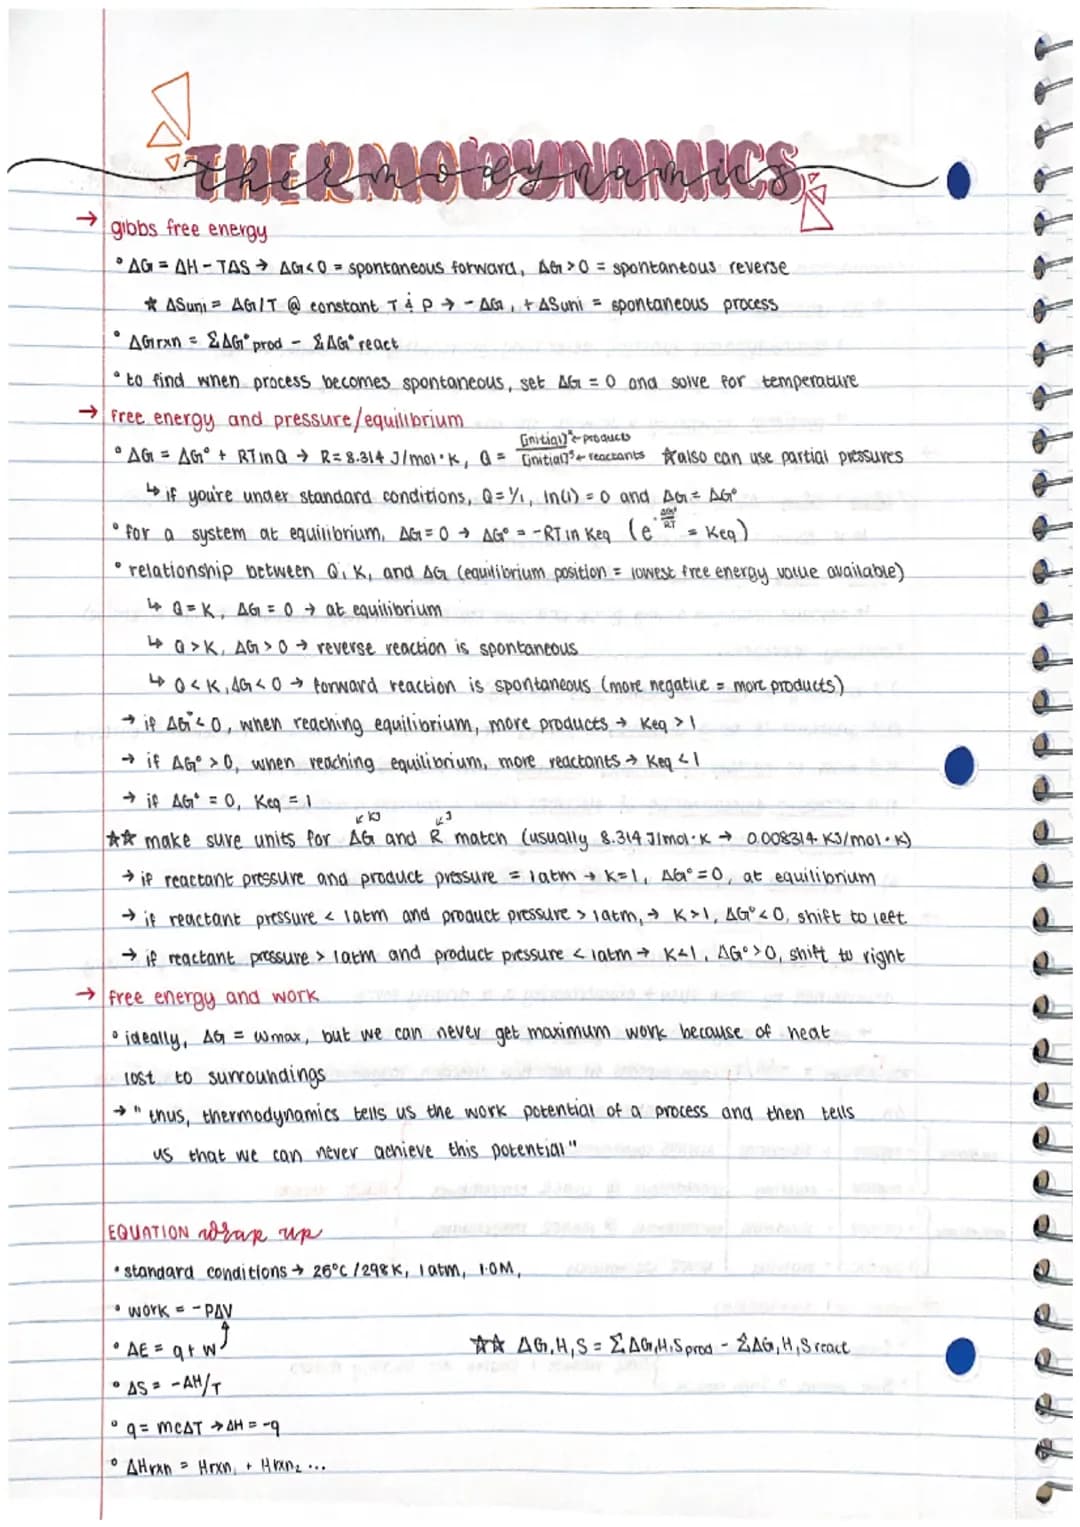 THERMODYNAMICS
thermodynamics
→ gibbs free energy
° ΔG = ΔH - TΔS → ΔG < 0 = spontaneous forward, ΔG > 0 = spontaneous reverse
☆ ΔSuni = ΔG/T @ constant T & P → - ΔG, + ΔSuni = spontaneous process
° ΔGrxn = ΣΔG° prod - ΣΔG° react
° to find when process becomes spontaneous, set ΔG = 0 and solve for temperature
→ free energy and pressure/equilibrium
° ΔG = ΔG° + RTlnQ → R = 8.314 J/mol·K, Q = [initial]ˣ ← products / [initial]ˣ ← reactants ☆ also can use partial pressures
↳ if you're under standard conditions, Q = 1/1, ln(1) = 0 and ΔG = ΔG°
° for a system at equilibrium, ΔG = 0 → ΔG° = -RT ln Keq (e^(-ΔG°/RT) = Keq)
° relationship between Q, K, and ΔG (equilibrium position = lowest free energy value available)
↳ Q = K, ΔG = 0 → at equilibrium
↳ Q > K, ΔG > 0 → reverse reaction is spontaneous
↳ Q < K, ΔG < 0 → forward reaction is spontaneous (more negative = more products)
→ if ΔG° < 0, when reaching equilibrium, more products → Keq > 1
→ if ΔG° > 0, when reaching equilibrium, more reactants → Keq < 1
→ if ΔG° = 0, Keq = 1
↙ KJ ↙ J
☆☆ make sure units for ΔG and R match (usually 8.314 J/mol·K → 0.008314 KJ/mol·K)
→ if reactant pressure and product pressure = 1atm → K=1, ΔG° = 0, at equilibrium
→ if reactant pressure < 1atm and product pressure > 1atm, → K>1, ΔG° < 0, shift to left
→ if reactant pressure > 1atm and product pressure < 1atm → K<1, ΔG° > 0, shift to right
→ free energy and work
° ideally, ΔG = wmax, but we can never get maximum work because of heat
lost to surroundings
→ "thus, thermodynamics tells us the work potential of a process and then tells
us that we can never achieve this potential"
EQUATION wrap up
° standard conditions → 25°C / 298K, 1 atm, 1.0M,
° work = -PΔV
° ΔE = q + w
☆☆ ΔG,H,S = ΣΔG,H,S prod - ΣΔG,H,S react
° ΔS = -ΔH/T
° q = mcΔT → ΔH = -q
° ΔHrxn = Hrxn₁ + Hrxn₂ ...